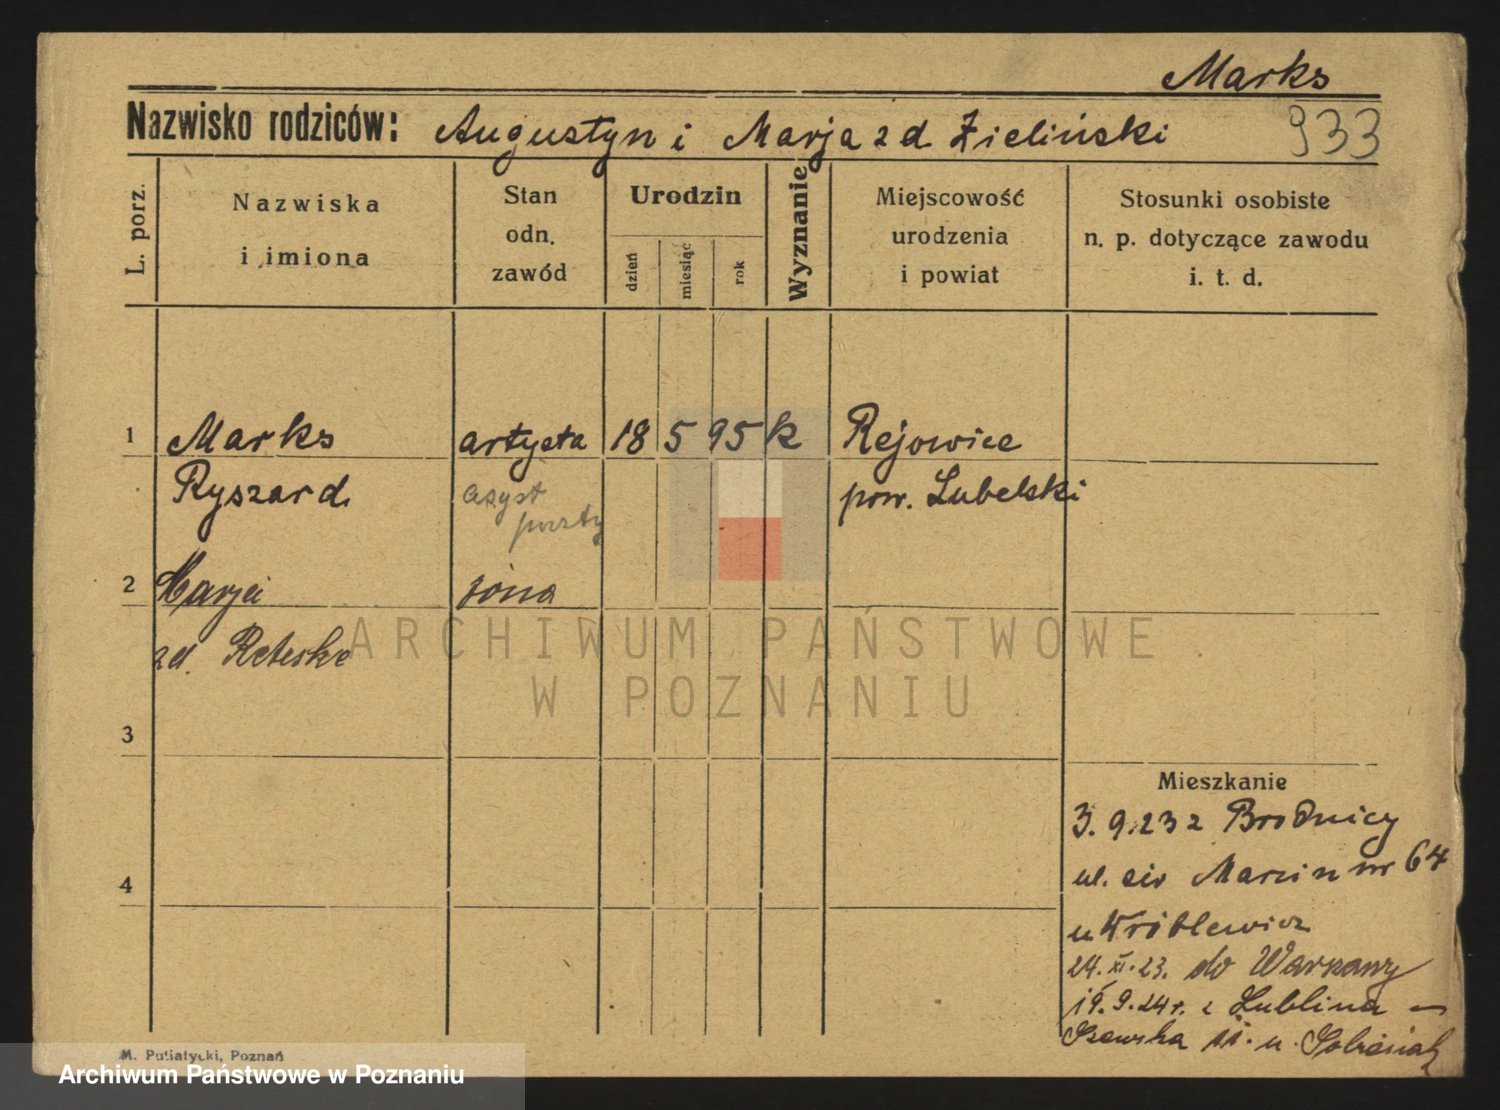 Marks
Nazwisko rodziców: Augustyn i Marja z d Zieliński 933
L. porz.
Nazwiska
i imiona
Stan
odn.
zawód
Urodzin
dzień
miesiąc
rok
Wyznanie
Miejscowość
urodzenia
i powiat
Stosunki osobiste
n. p. dotyczące zawodu
i. t. d.
1 Marks artysta 18 5 95 k Rejowice
Ryszard asyst pow. Lubelski
poczty
2 Marja żona
zd.
ARCHIWUM PAŃSTWOWE
W POZNANIU
3
Mieszkanie
3. 9. 23 z Brodnicy
4 ul. św Marcin nr 64
u Wróblewicz
24. XI. 23. do Warszawy
19. 9. 24 r. z Lublina –
Szewska 11. u.
M. Putiatycki, Poznań
Archiwum Państwowe w Poznaniu